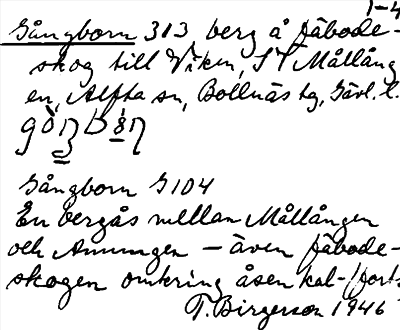 1-4
Gångborn 313, berg å fäbode-
skog till Viken, ST Mållång
en, Alfta sn, Bollnäs tg, Gävl. l.
Gångborn G104
En bergås mellan Mållången
och Amungen – även fäbode-
skogen omkring åsen kal-/forts
T. Birgerson 1946